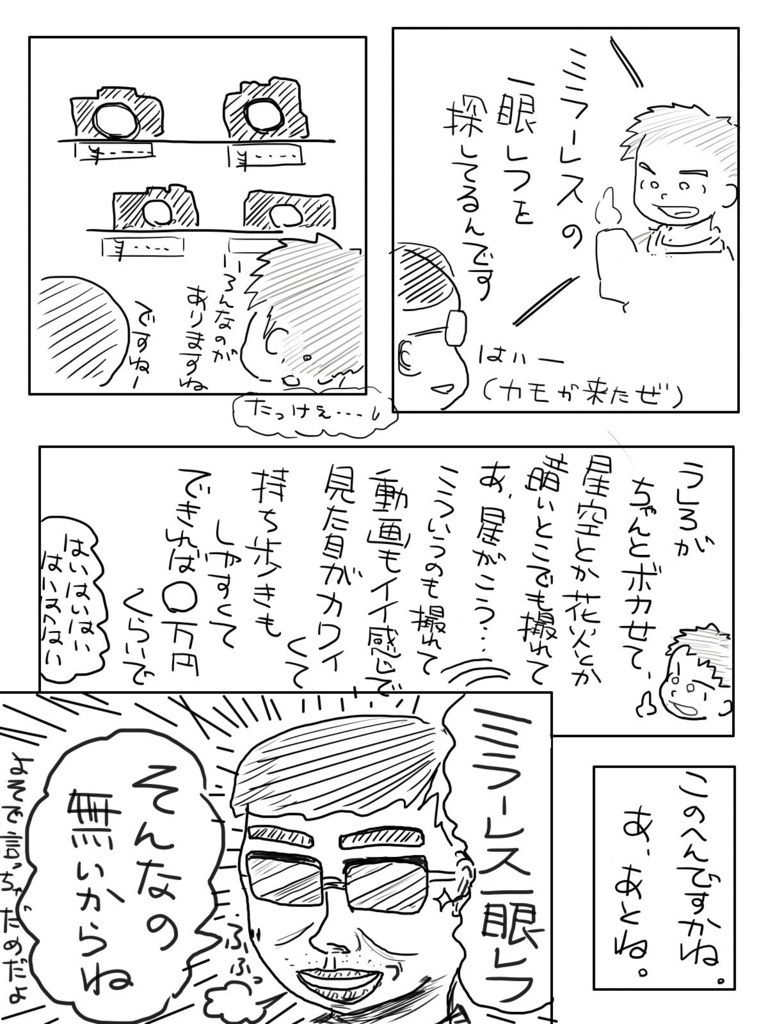 ミラーレスの
一眼レフを
探してるんです
はいー
(カモが来たぜ)
¥----
¥----
¥----
いろんなのが
ありますね
ですねー
たっけぇ…!
うしろが
ちゃんとボカせて、
星空とか花火とか
暗いとこでも撮れて
あ、星がこう…
こういうのも撮れて
動画もイイ感じで
見た目がカワイ
くて
持ち歩きも
しやすくて
できれば〇万円
くらいで
はいはいはい
はいはいはい
このへんですかね。
あ、あとね。
ミラーレス一眼レフ
そんなの
無いからね
ふふっ
よそで言っちゃだめだよ